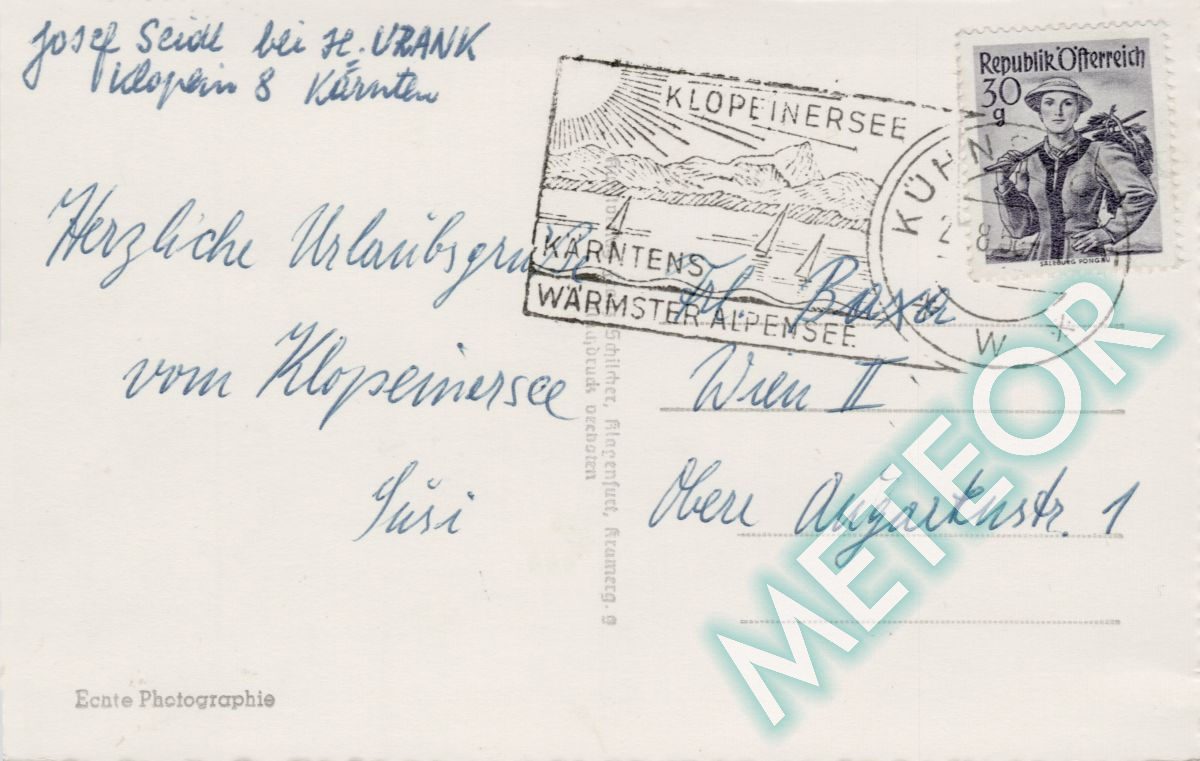 Josef Seidl bei H. URANK
Klopein 8 Kärnten
Republik Österreich
30
g
SALZBURG PONGAU
KLOPEINERSEE
KÄRNTENS
WÄRMSTER ALPENSEE
KÜHN
W
Herzliche Urlaubsgrüße
vom Klopeinersee
Susi
Frl. Baxa
Wien II
Obere Augartenstr. 1
Schilcher, Klagenfurt, Kramerg. 9
verboten
Echte Photographie
METEOR